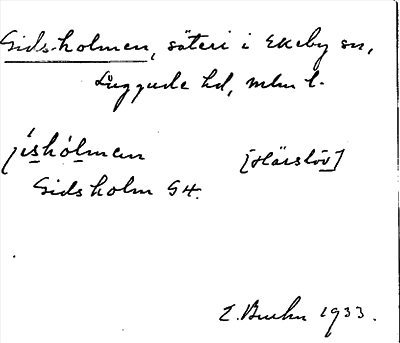 Gids-holmen, säteri i Ekeby sn,
Luggude hd, mlm l.
jíshólmen [Härslöv]
Gidsholm G4.
E. Bruhn 1933.